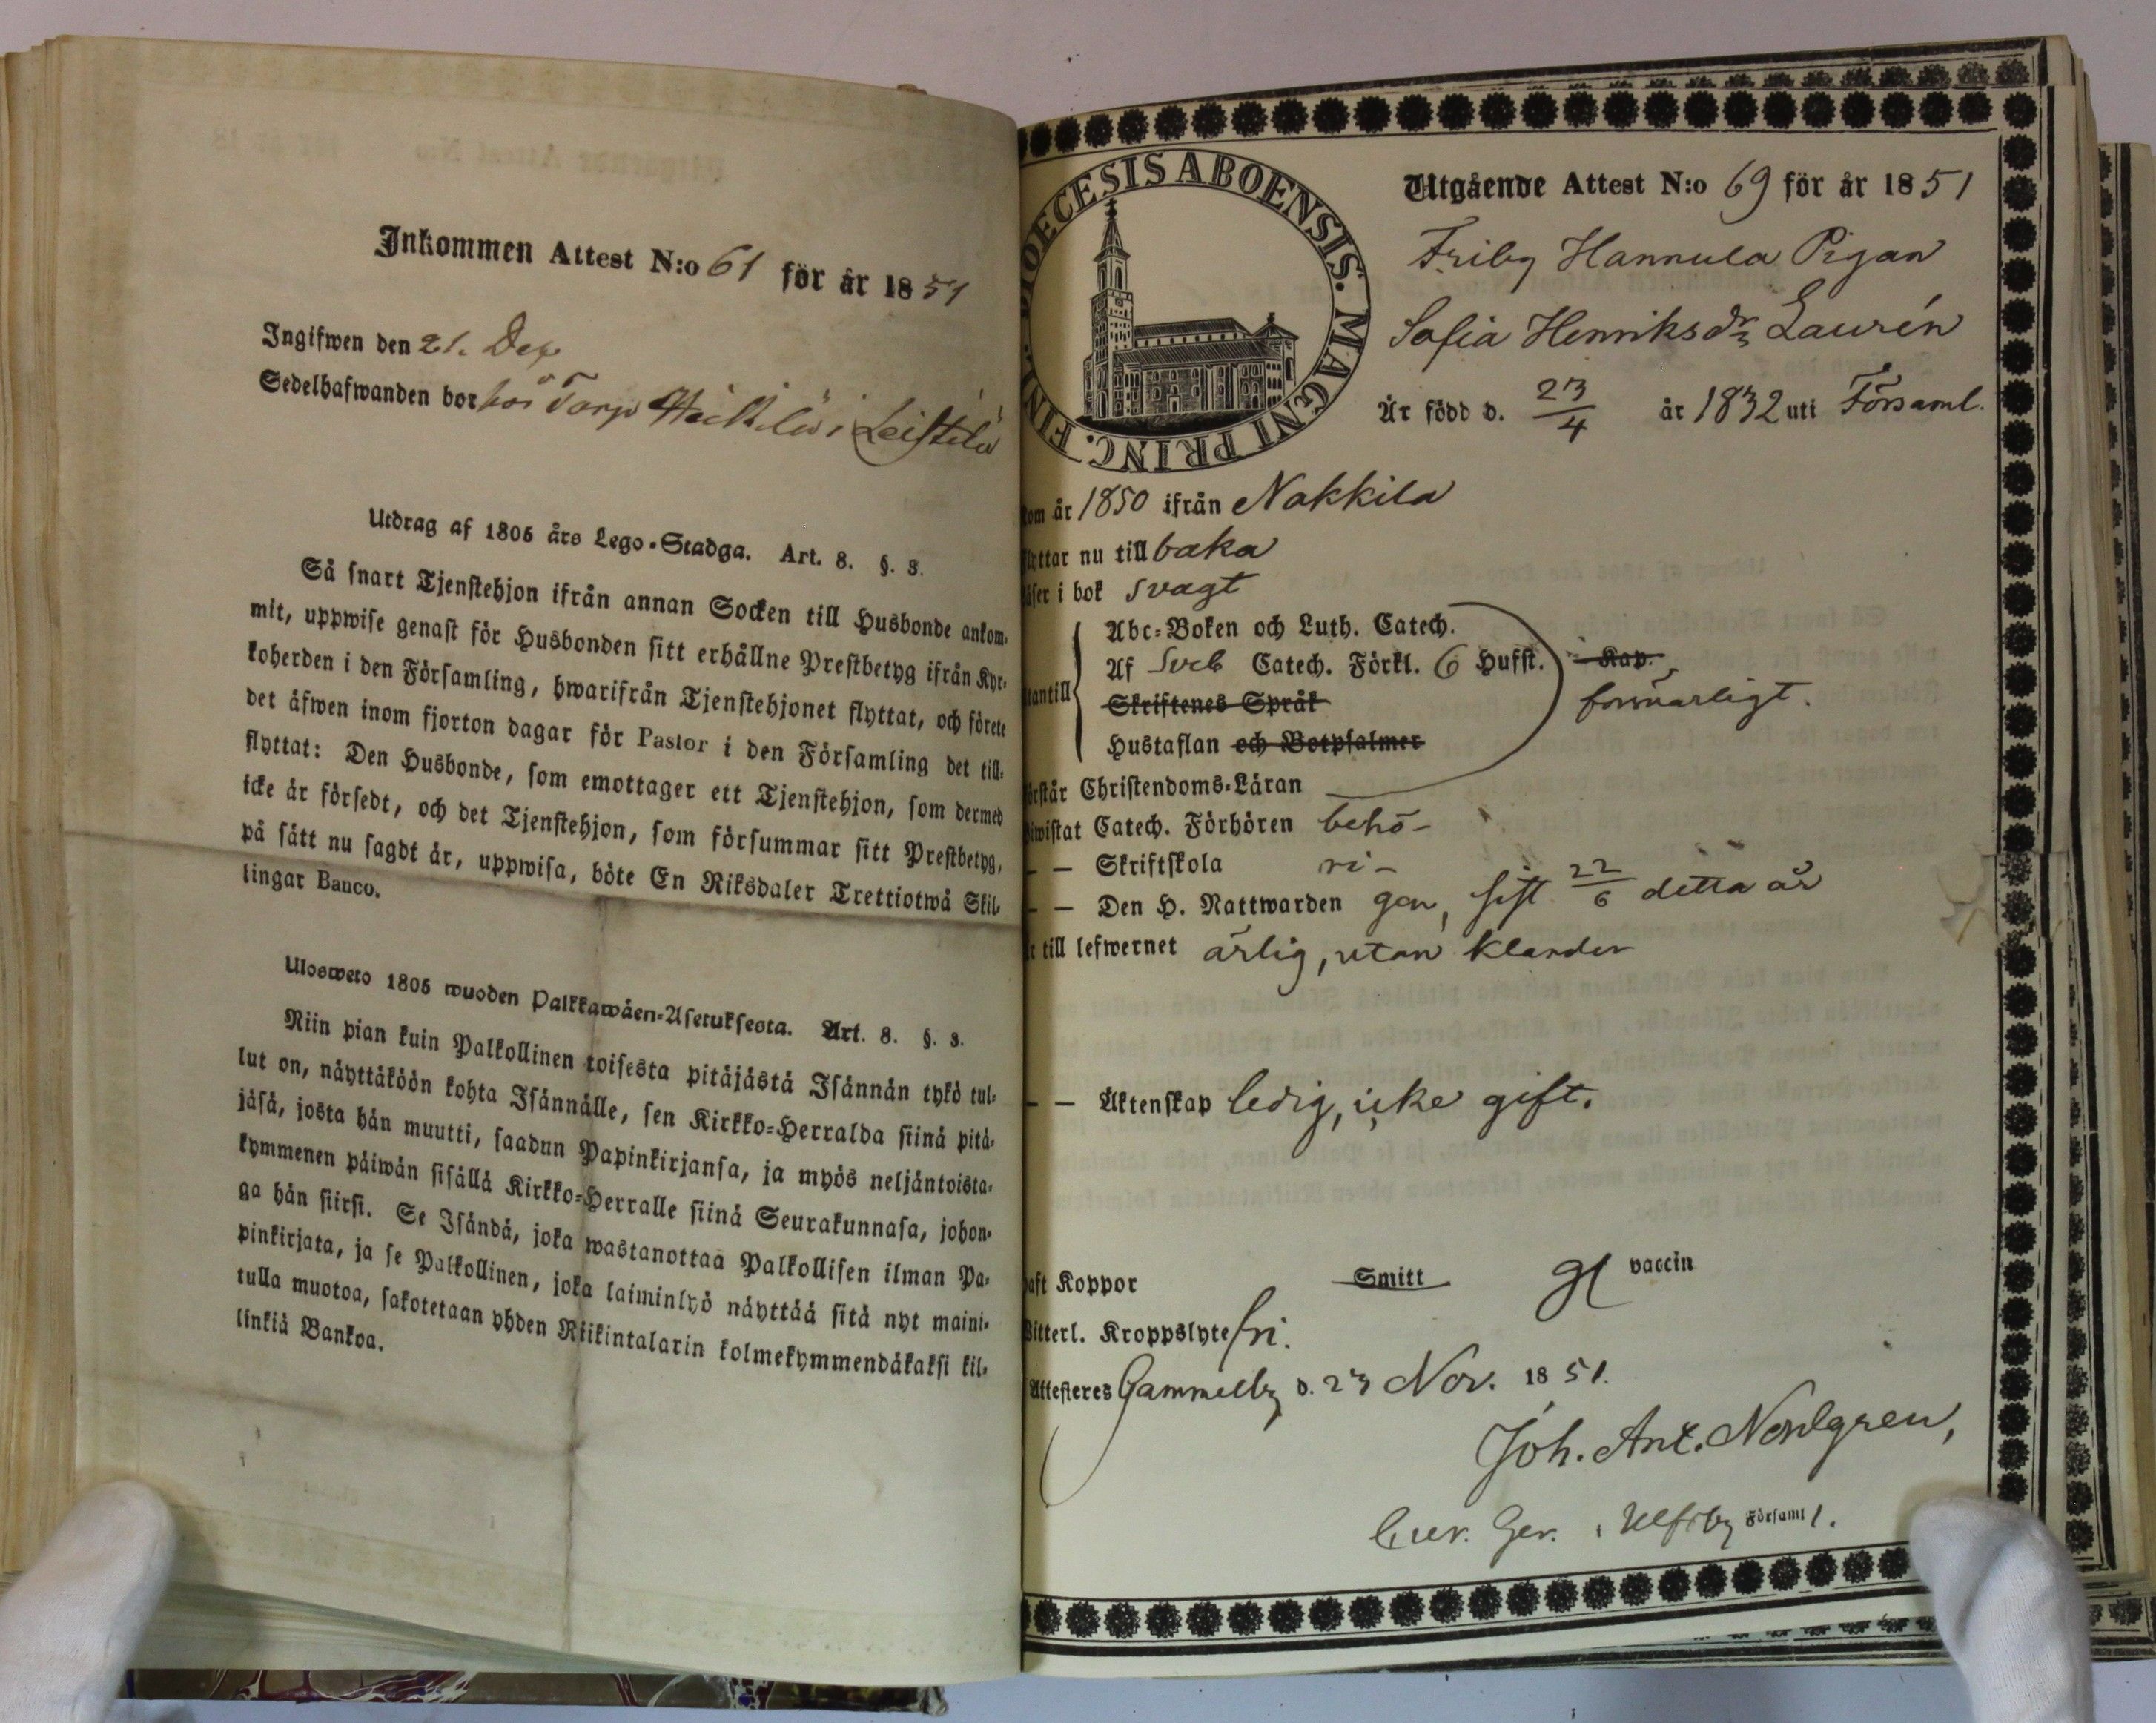 Inkommen Attest N:o 61 för år 1851
Ingifwen den 21. Dec
Sedelhafwanden bor hos Torp i Leistilä
Utdrag af 1805 års Lego-Stadga. Art. 8. §. 3.
Så snart Tjenstehjon ifrån annan Socken till Husbonde ankom-
mit, uppwise genast för Husbonden sitt erhållne Prestbetyg ifrån Kyr-
koherden i den Församling, hwarifrån Tjenstehjonet flyttat, och förete
det äfwen inom fjorton dagar för Pastor i den Församling det till-
flyttat: Den Husbonde, som emottager ett Tjenstehjon, som dermed
icke är försedt, och det Tjenstehjon, som försummar sitt Prestbetyg,
på sätt nu sagdt är, uppwisa, böte En Riksdaler Trettiotwå Skil-
lingar Banco.
Ulosweto 1805 wuoden Palkkawäen-Asetuksesta. Art. 8. §. 3.
Niin pian kuin Palkollinen toisesta pitäjästä Isännän tykö tul-
lut on, näyttäköön kohta Isännälle, sen Kirkko-Herralda siinä pitä-
jäsä, josta hän muutti, saadun Papinkirjansa, ja myös neljäntoista-
kymmenen päiwän sisällä Kirkko-Herralle siinä Seurakunnasa, johon-
ga hän siirsi. Se Isändä, joka wastanottaa Palkollisen ilman Pa-
pinkirjata, ja se Palkollinen, joka laiminlyö näyttää sitä nyt maini-
tulla muotoa, sakotetaan yhden Riikintalarin kolmekymmendäkaksi kil-
linkiä Bankoa.
DIOECESIS ABOENSIS. MAGNI PRINC. FINL.
Utgående Attest N:o 69 för år 1851
Friby Hannula Pigan
Sofia Henriksdr Laurén
Är född d. 23/4 år 1832 uti Församl.
kom år 1850 ifrån Nakkila
flyttar nu till baka
läser i bok svagt
Abc-Boken och Luth. Catech.
Af Sveb Catech. Förkl. 6 Hufst. Kap.
utantill Skriftenes Språk försvarligt.
Hustaflan och Botpsalmer
förstår Christendoms-Läran
biwistat Catech. Förhören behö-
— — Skriftskola ri-
— — Den H. Nattwarden gen, sist 22/6 detta år
är till lefwernet ärlig, utan klander
— — Äktenskap ledig, icke gift.
haft Koppor Smitt vaccin
Witterl. Kroppslyte fri.
Attesteres Gammelby d. 23 Nov. 1851.
Joh. Ant. Nordgren,
i Ulfsby Församl.